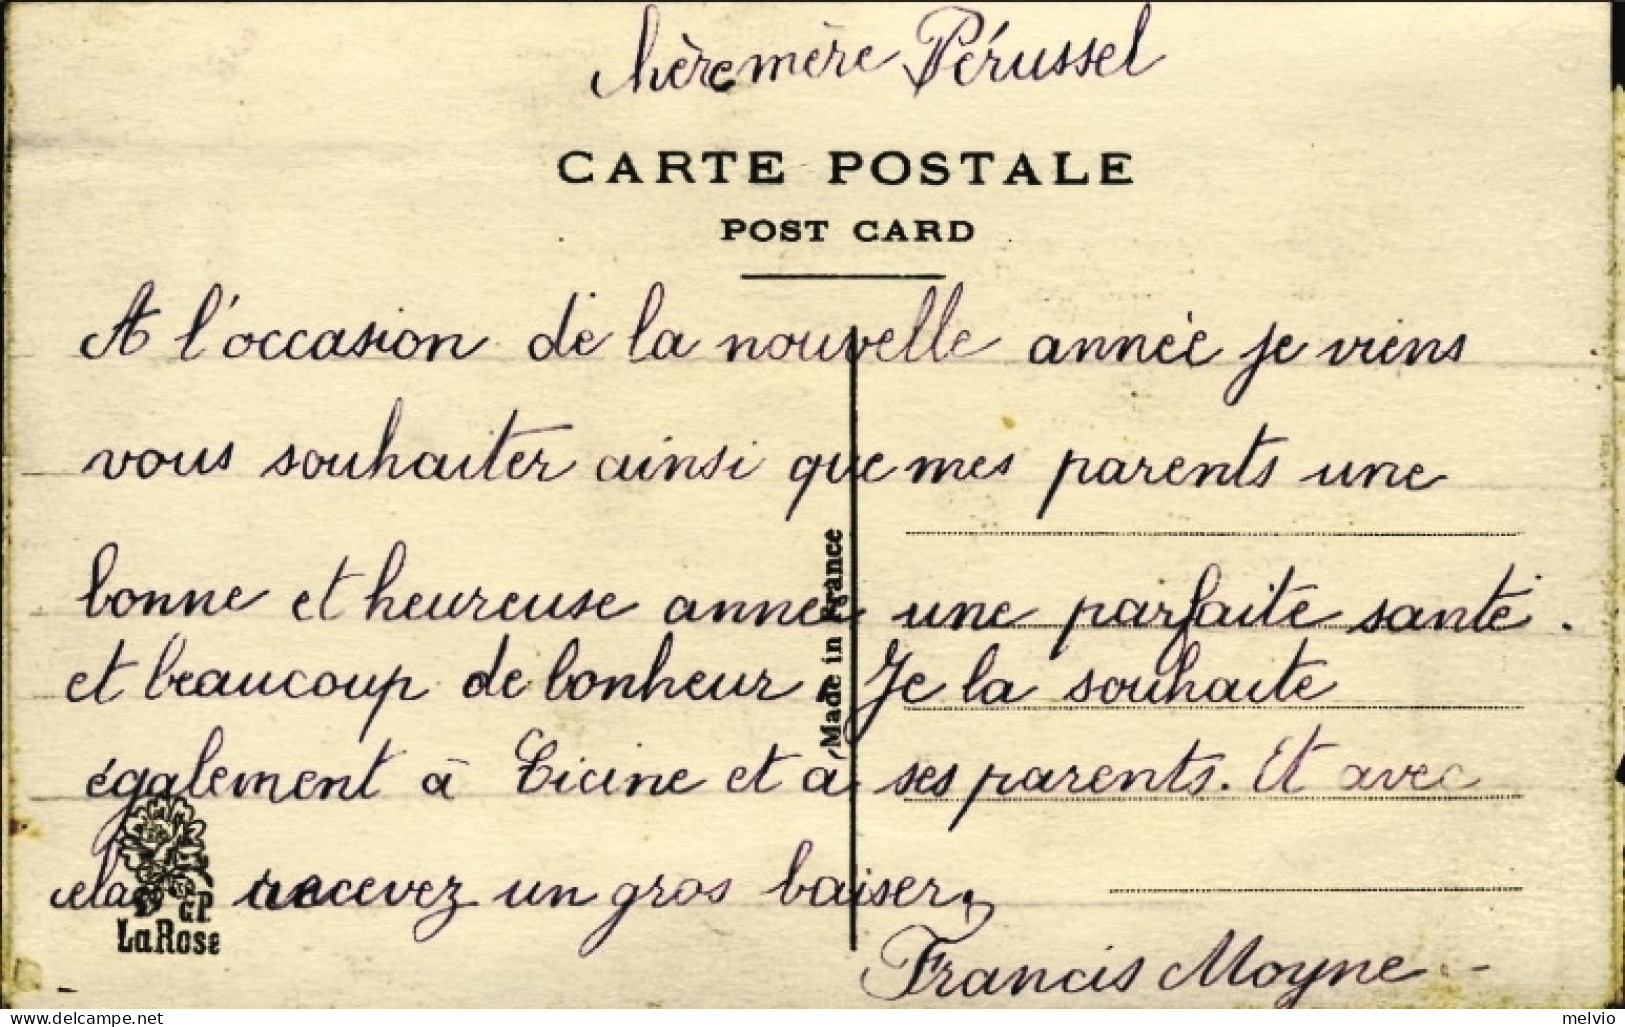 chère mère Pérussel
CARTE POSTALE
POST CARD
A l'occasion de la nouvelle année je viens
vous souhaiter ainsi que mes parents une
bonne et heureuse année une parfaite santé.
et beaucoup de bonheur. Je la souhaite
également à Ticine et à ses parents. Et avec
cela recevez un gros baiser,
Francis Moyne
Made in France
EP
La Rose
melvio